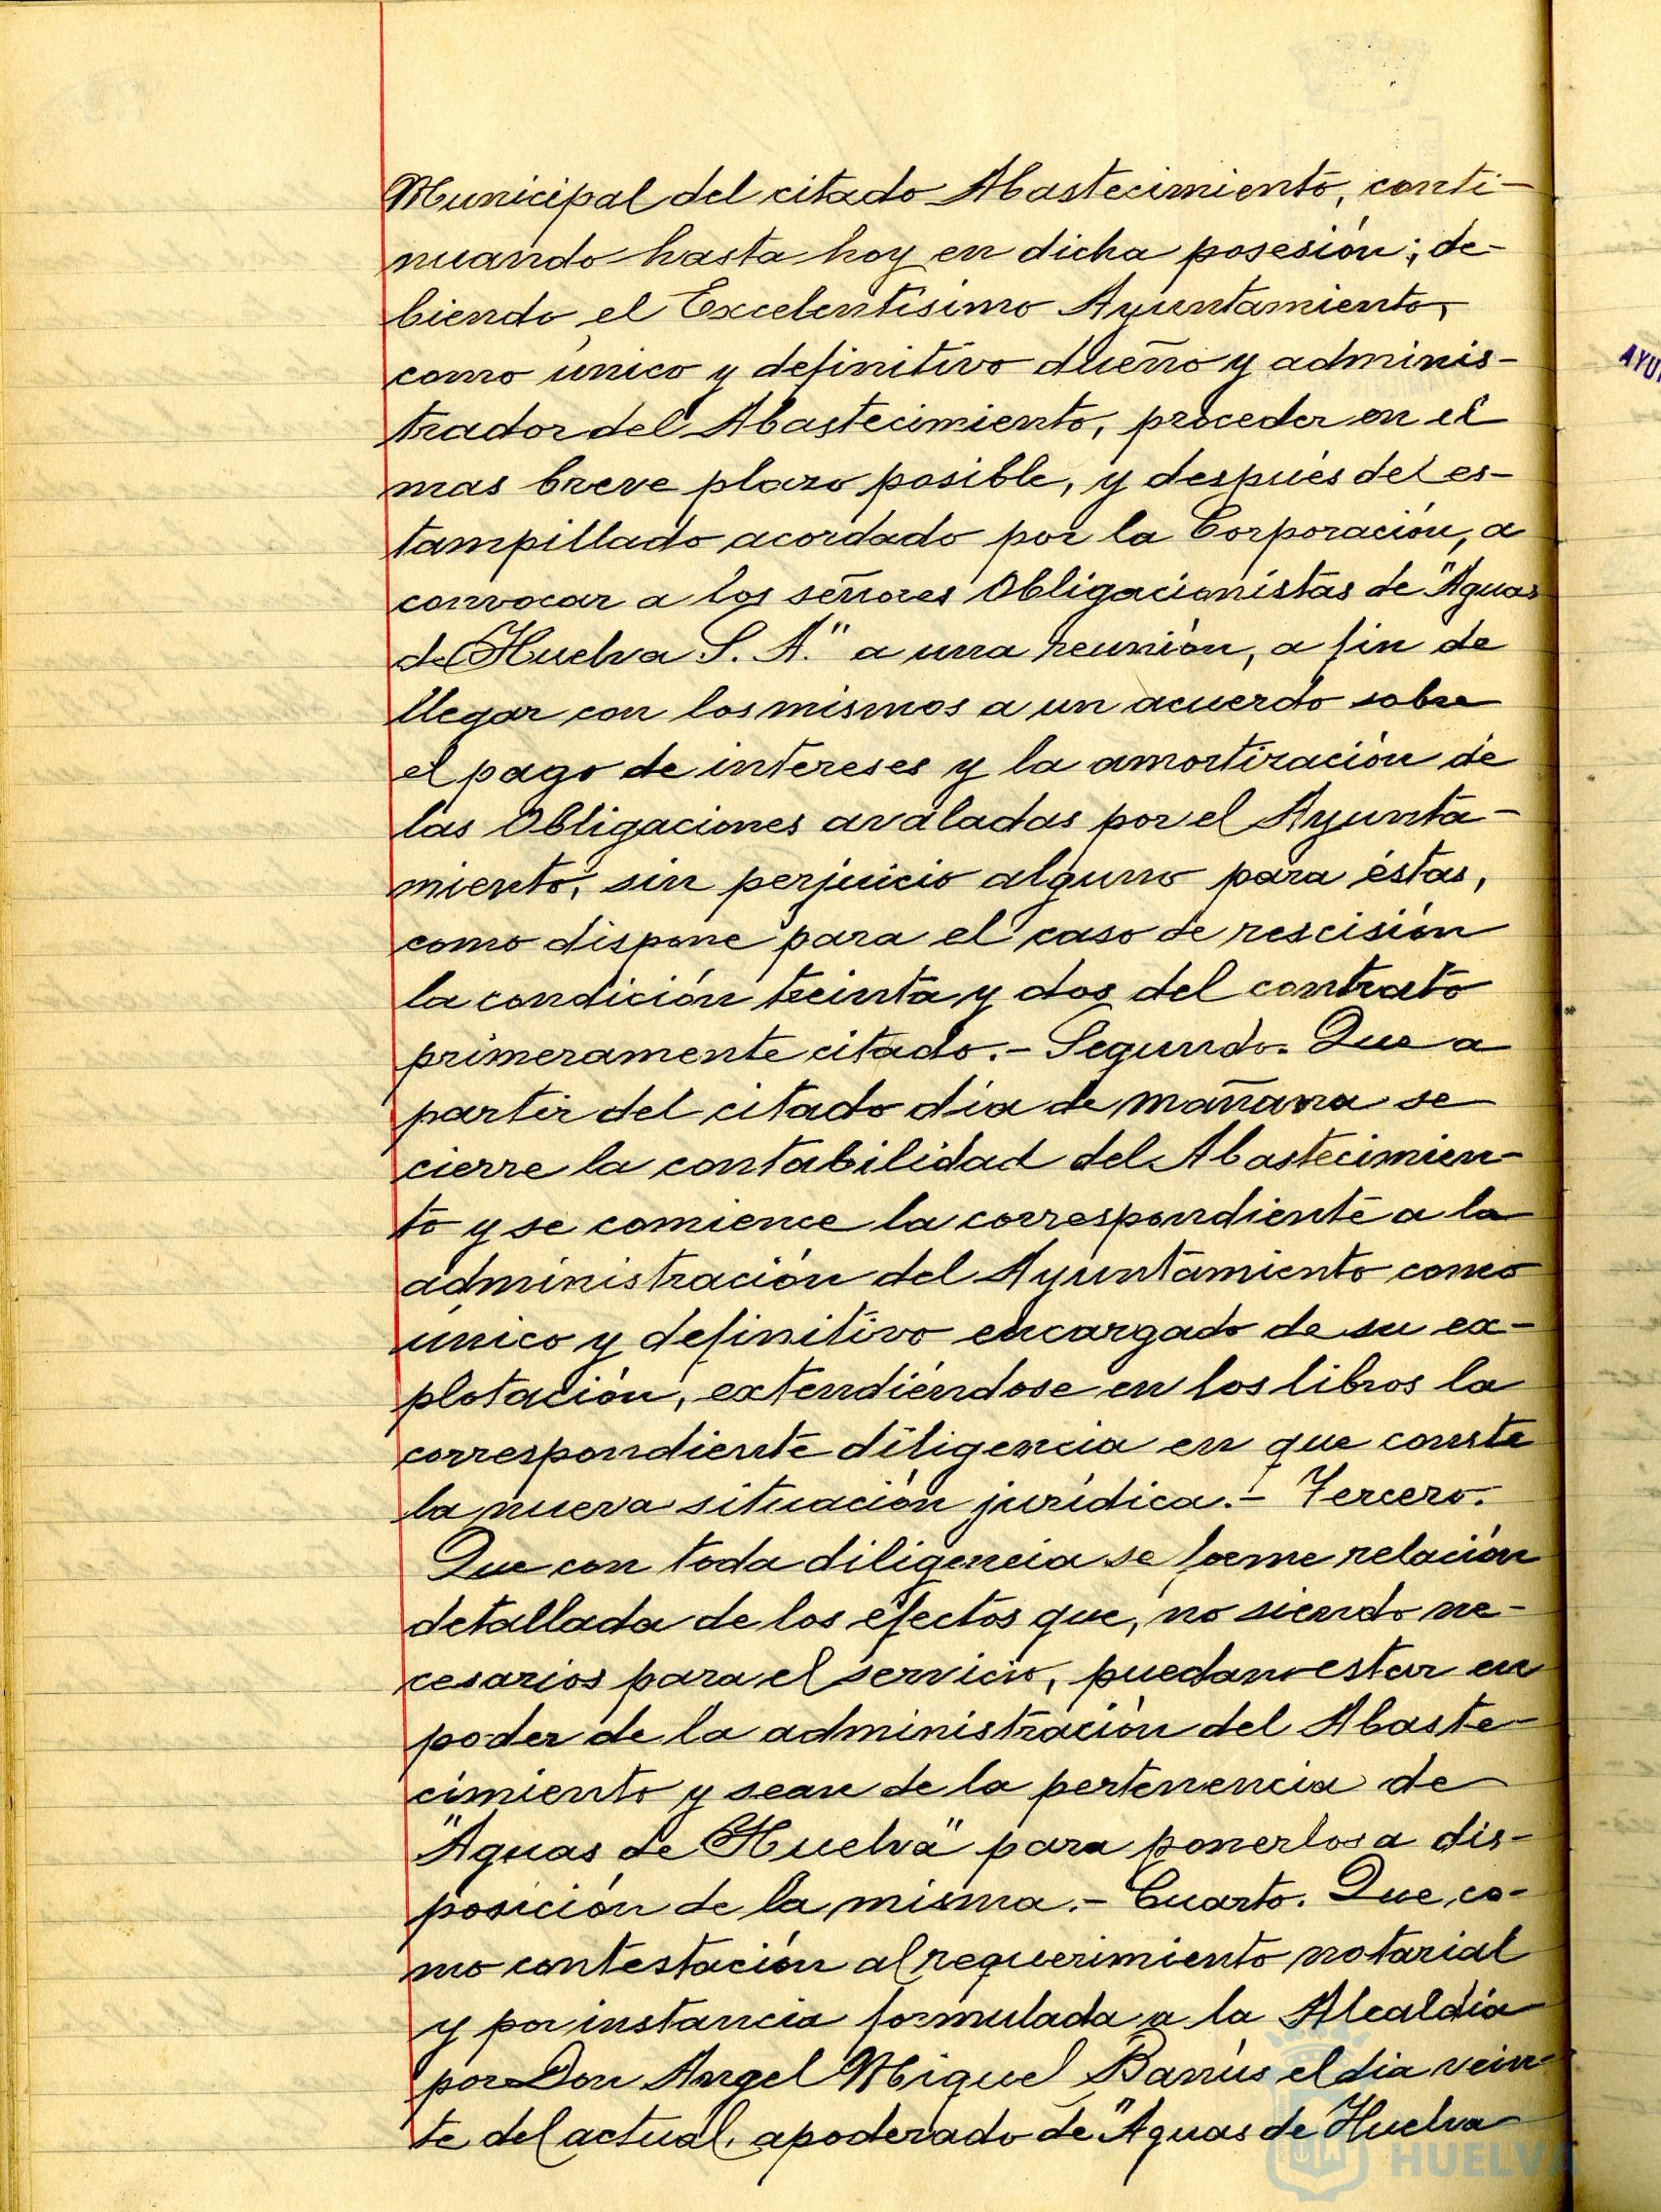 Municipal del citado Abastecimiento, conti-
nuando hasta hoy en dicha posesión; de-
biendo el Excelentísimo Ayuntamiento,
como único y definitivo dueño y adminis-
trador del Abastecimiento, proceder en el
mas breve plazo posible, y después del es-
tampillado acordado por la Corporación, a
convocar a los señores Obligacionistas de "Aguas
de Huelva S. A." a una reunión, a fin de
llegar con los mismos a un acuerdo sobre
el pago de intereses y la amortización de
las Obligaciones avaladas por el Ayunta-
miento, sin perjuicio alguno para éstas,
como dispone para el caso de rescisión
la condición treinta y dos del contrato
primeramente citado.- Segundo. Que a
partir del citado día de mañana se
cierre la contabilidad del Abastecimien-
to y se comience la correspondiente a la
administración del Ayuntamiento como
único y definitivo encargado de su ex-
plotación, extendiéndose en los libros la
correspondiente diligencia en que conste
la nueva situación jurídica.- Tercero.
Que con toda diligencia se forme relación
detallada de los efectos que, no siendo ne-
cesarios para el servicio, puedan estar en
poder de la administración del Abaste-
cimiento y sean de la pertenencia de
"Aguas de Huelva" para ponerlos a dis-
posición de la misma.- Cuarto. Que co-
mo contestación al requerimiento notarial
y por instancia formulada a la Alcaldía
por Don Angel Miguel Barrús el día vein-
te del actual, apoderado de "Aguas de Huelva
AYU
HUELVA